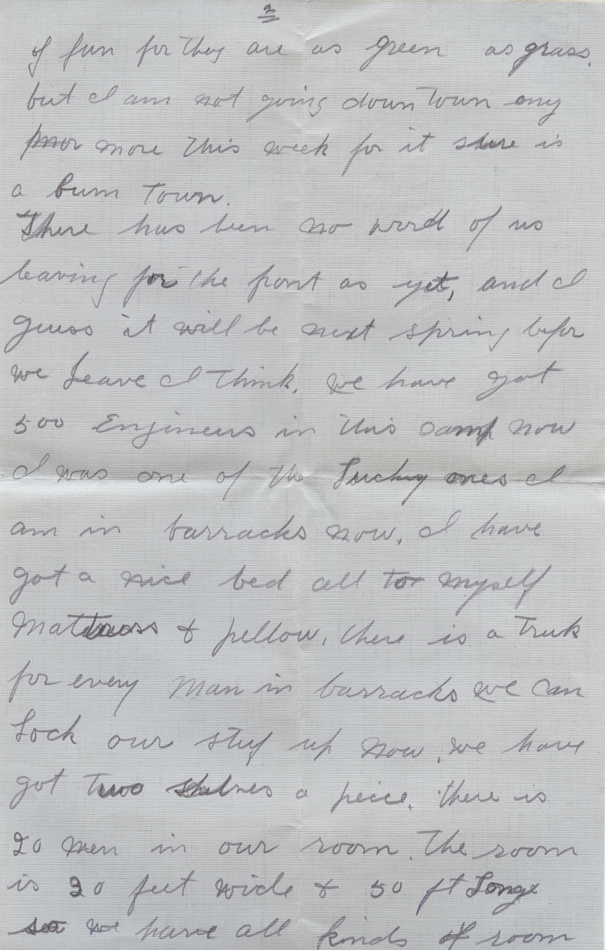 2
of fun for they are as green as grass.
but I am not going down town any
mor more this week for it sure is
a bum town.
There has been no word of us
leaving for the front as yet, and I
guess it will be next spring befor
we leave I think. we have got
500 Engineers in this camp now
I was one of the Lucky ones I
am in barracks now, I have
got a nice bed all to myself
Mattrass & pellow, there is a Truk
for every man in barracks we can
Lock our stuf up now, we have
got two shelves a peice. there is
20 men in our room. The room
is 30 feet wide & 50 ft Longe
so we have all kinds of room